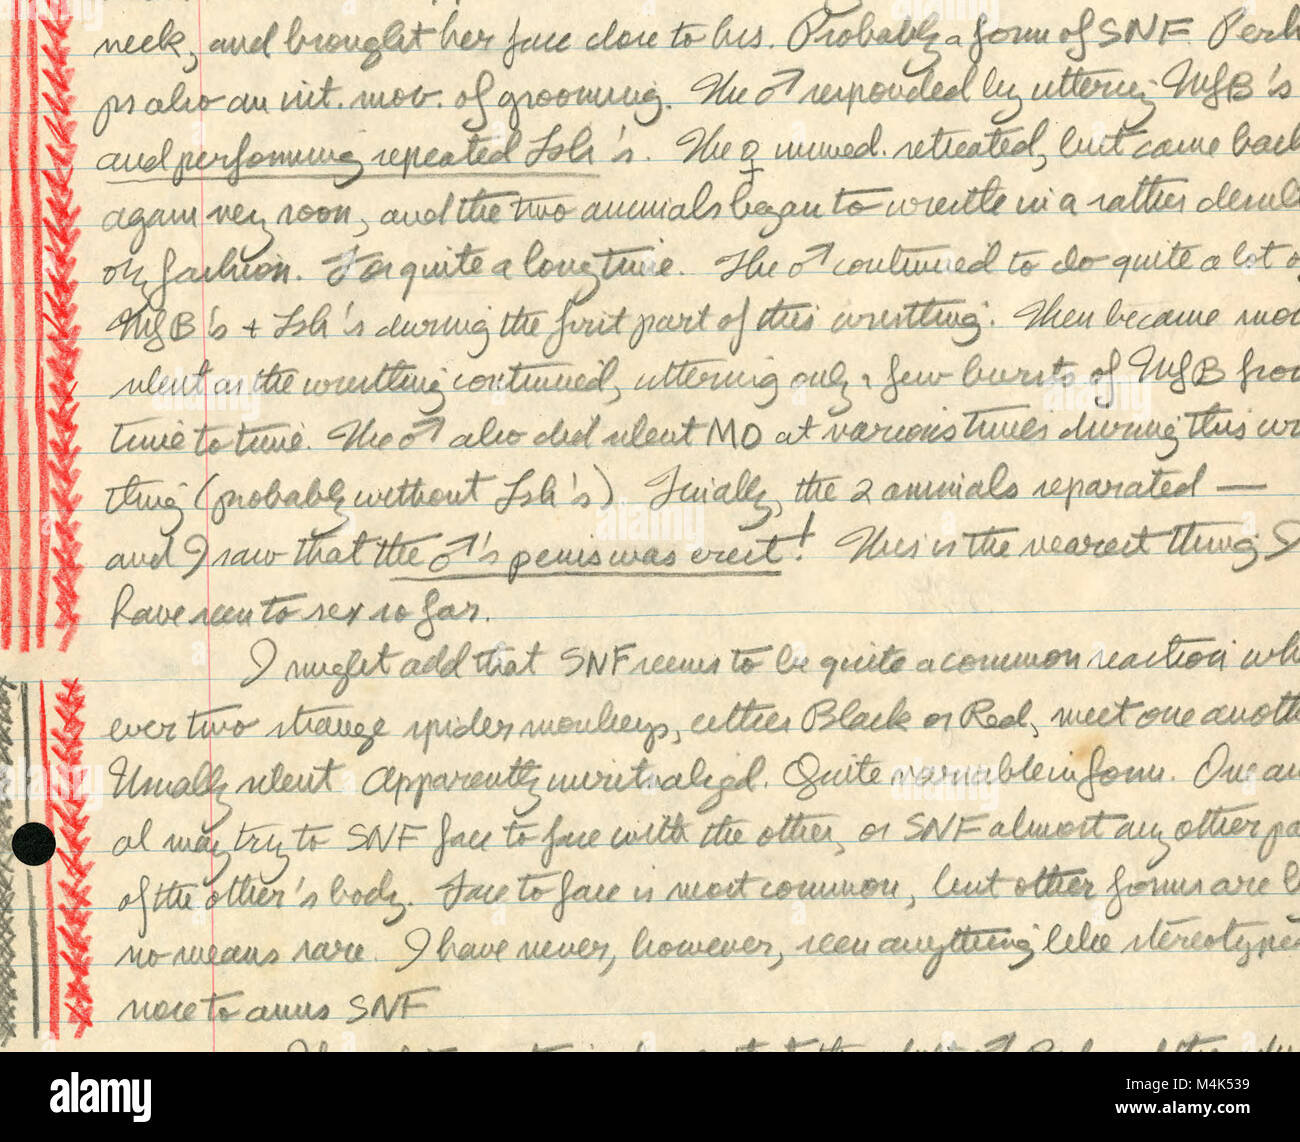 neck, and brought her face close to his. Probably a form of SNF. Perh
ps also an int. mov. of grooming. The ♂ responded by uttering NfB's
and performing repeated Hsh's. The ♀ immed. retreated, but came back
again very soon, and the two animals began to wrestle in a rather desult
ory fashion. For quite a long time. The ♂ continued to do quite a lot of
NfB's + Hsh's during the first part of this wrestling. Then became mo
silent as the wrestling continued, uttering only a few bursts of NfB from
time to time. The ♂ also did silent MO at various times during this wr
tling (probably without Hsh's). Finally, the 2 animals separated —
and I saw that the ♂'s penis was erect! This is the nearest thing I
have seen to sex so far.
I might add that SNF seems to be quite a common reaction wh
ever two strange spider monkeys, either Black or Red, meet one anoth
Usually silent. Apparently unritualized. Quite variable in form. One an
al may try to SNF face to face with the other, or SNF almost any other pa
of the other's body. Face to face is most common, but other forms are b
no means rare. I have never, however, seen anything like stereotyped
nose to anus SNF
alamy
Image ID: M4K539
www.alamy.com